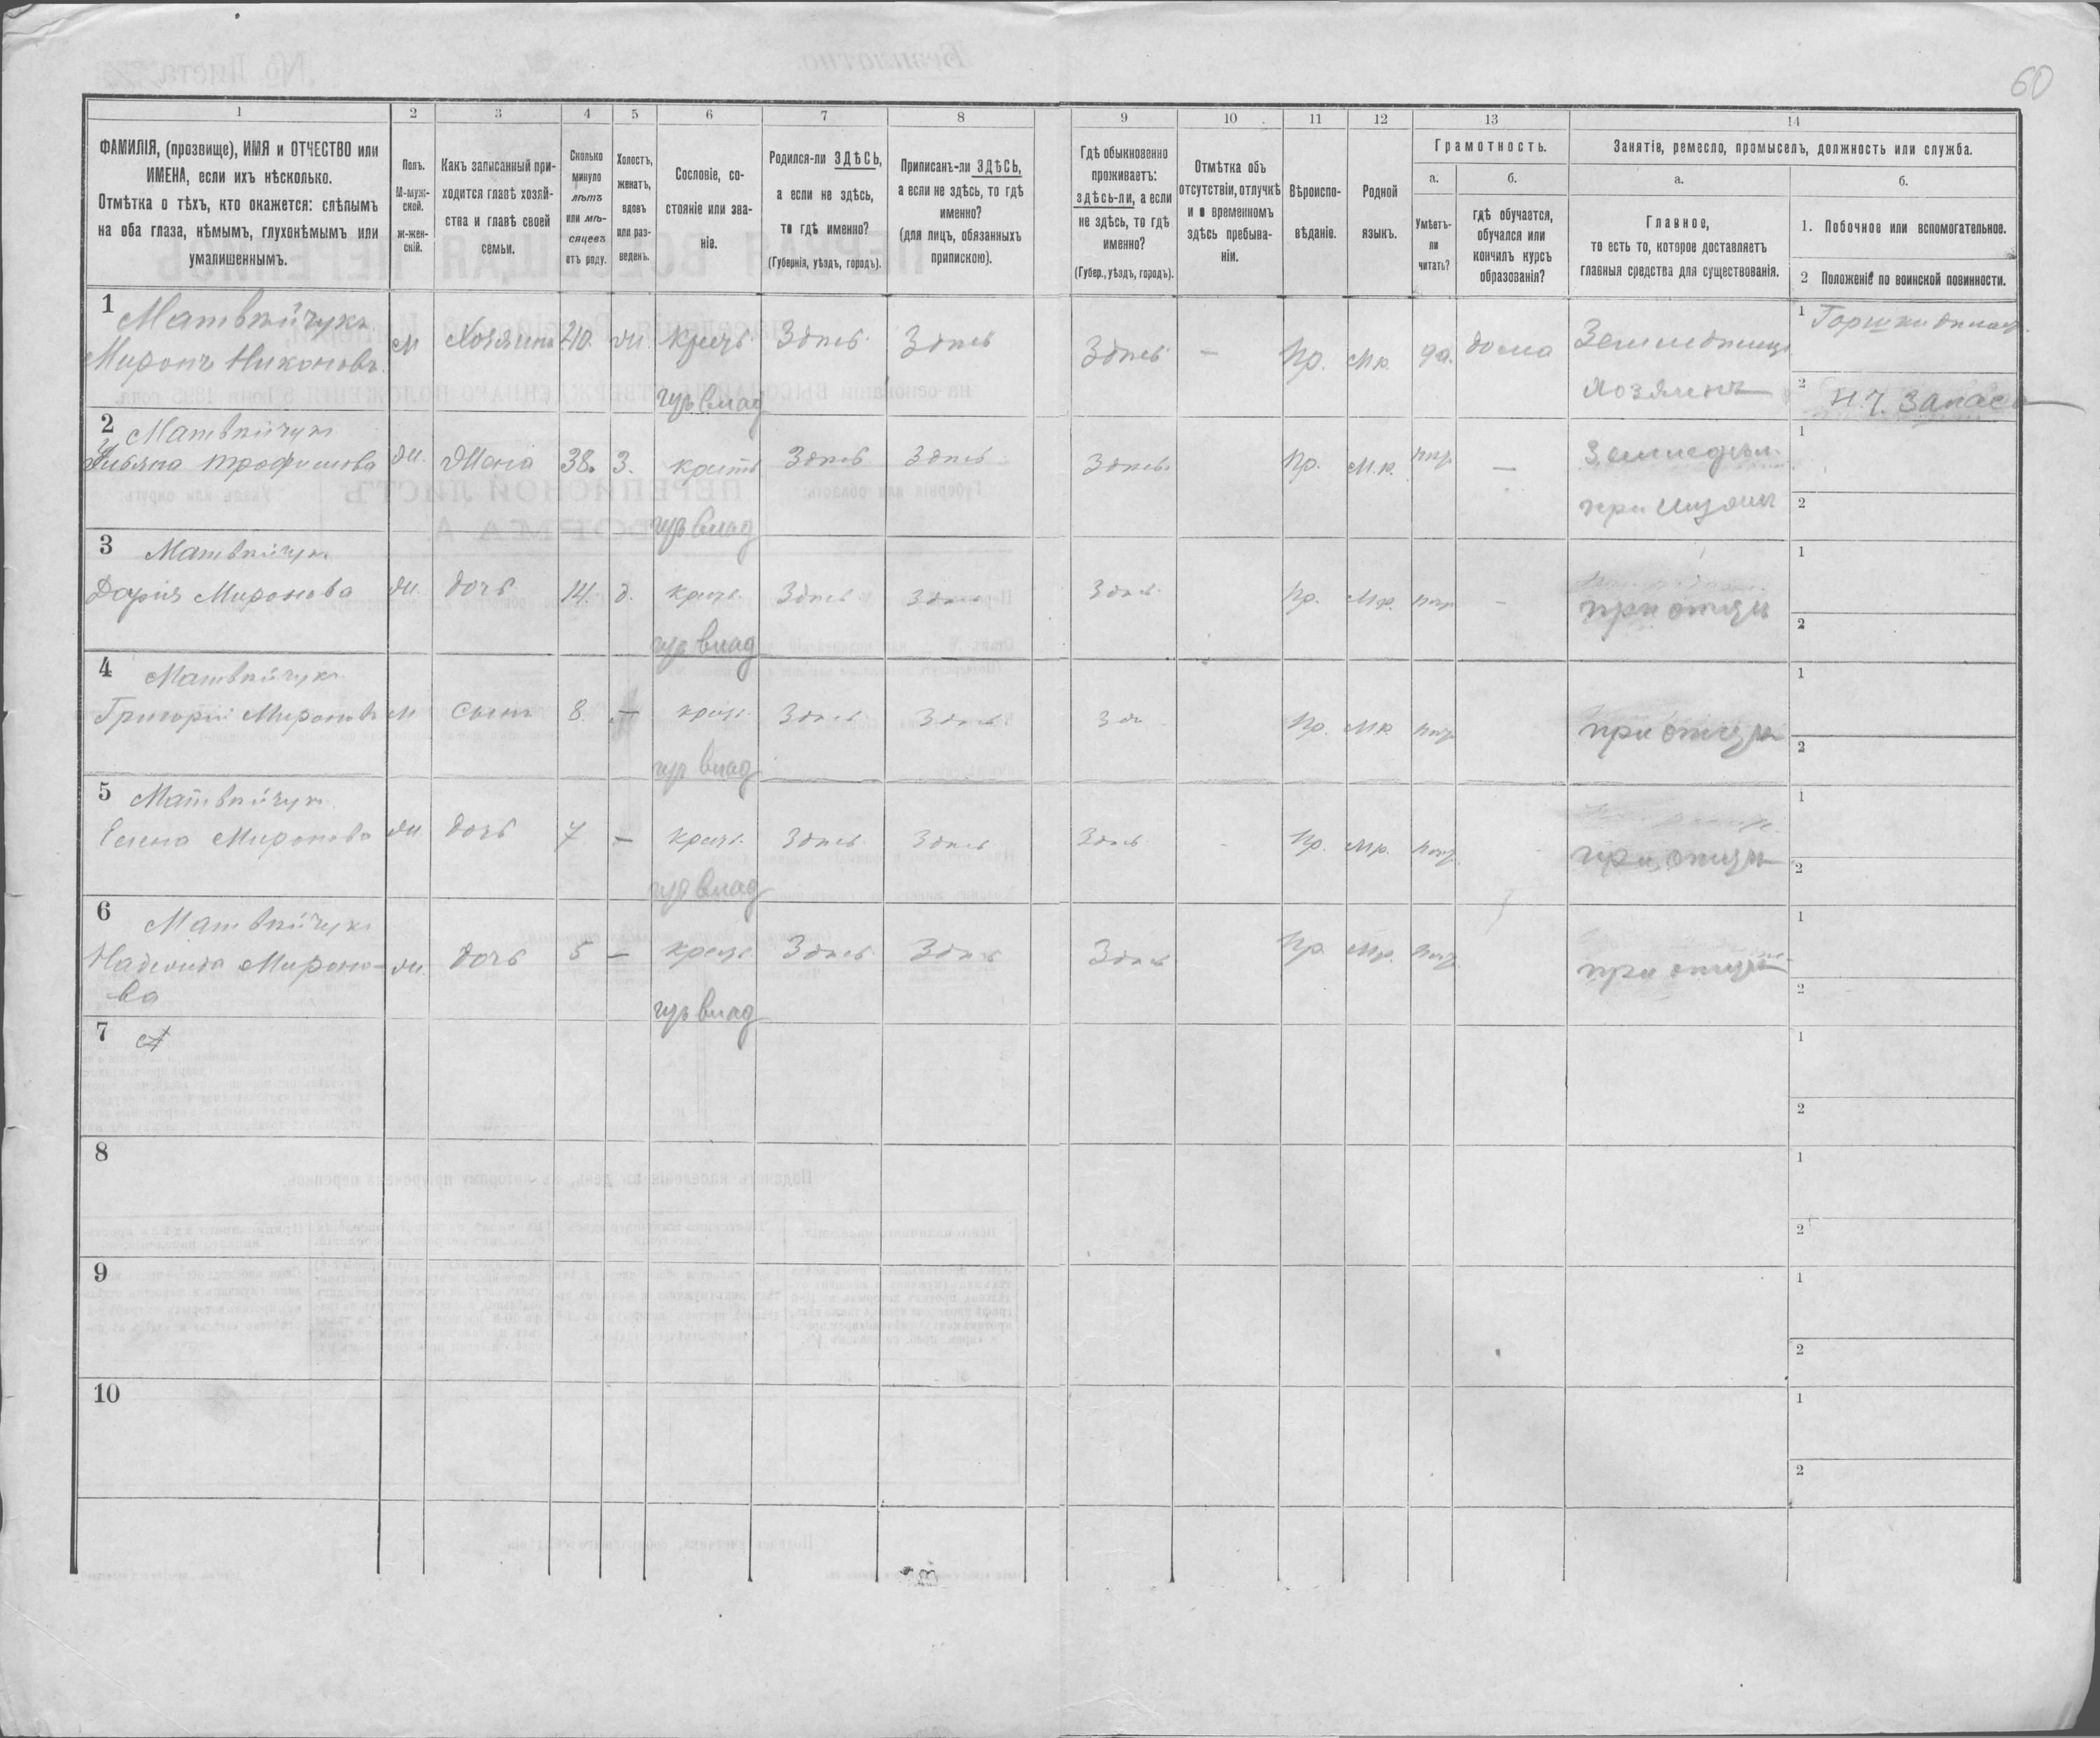 60
1
2
3
4
5
6
7
8
9
10
11
12
13
14
ФАМИЛІЯ, (прозвище), ИМЯ и ОТЧЕСТВО или
ИМЕНА, если ихъ нѣсколько.
Отмѣтка о тѣхъ, кто окажется: слѣпымъ
на оба глаза, нѣмымъ, глухонѣмымъ или
умалишеннымъ.
Полъ.
М-муж-
ской.
ж-жен-
скій.
Какъ записанный при-
ходится главѣ хозяй-
ства и главѣ своей
семьи.
Сколько
минуло
лѣтъ
или мѣ-
сяцевъ
отъ роду.
Холостъ,
женатъ,
вдовъ
или раз-
веденъ.
Сословіе, со-
стояніе или зва-
ніе.
Родился-ли ЗДѢСЬ,
а если не здѣсь,
то гдѣ именно?
(Губернія, уѣздъ, городъ).
Приписанъ-ли ЗДѢСЬ,
а если не здѣсь, то гдѣ
именно?
(для лицъ, обязанныхъ
припискою).
Гдѣ обыкновенно
проживаетъ:
здѣсь-ли, а если
не здѣсь, то гдѣ
именно?
(Губер., уѣздъ, городъ).
Отмѣтка объ
отсутствіи, отлучкѣ
и о временномъ
здѣсь пребыва-
ніи.
Вѣроиспо-
вѣданіе.
Родной
языкъ.
Грамотность.
а.
Умѣетъ-
ли
читать?
б.
гдѣ обучается,
обучался или
кончилъ курсъ
образованія?
Занятіе, ремесло, промыселъ, должность или служба.
а.
Главное,
то есть то, которое доставляетъ
главныя средства для существованія.
б.
1. Побочное или вспомогательное.
2 Положеніе по воинской повинности.
1 Матвѣйчукъ
Миронъ Никоновъ. м Хозяинъ 40. ж. крест. Здѣсь Здѣсь Здѣсь — пр. мр. да. дома
хозяинъ
1
2 Н.Ч. Запаса
гзр влад
2 Матвѣйчукъ
Ульяна Трофимова ж. Жена 38. З. крест. Здѣсь Здѣсь Здѣсь пр. м.р. — Земледѣл.
при
1
2
гзр влад
3 Матвѣйчукъ
Дарія Миронова ж. дочь 14. д. крест. Здѣсь Здѣсь Здѣсь пр. мр. — при отцѣ
1
2
гзр влад
4 Матвѣйчукъ
Григорій Мироновъ м сынъ 8. — крест. Здѣсь Здѣсь Здѣ пр. мр при отцѣ
1
2
гзр влад
5 Матвѣйчукъ
Елена Миронова ж. дочь 7 — крест. Здѣсь Здѣсь Здѣсь пр. мр. при отцѣ
1
2
гзр влад
6 Матвѣйчукъ
Надежда Мироно-
ва ж. дочь 5 — крест. Здѣсь Здѣсь Здѣсь пр мр. при отцѣ
1
2
гзр влад
7
1
2
8
1
2
9
1
2
10
1
2